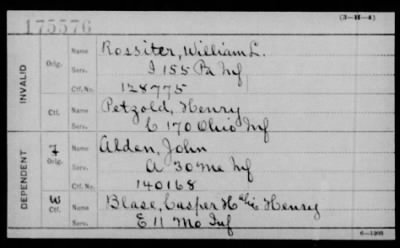 175576
(3-H-4)
INVALID
Orig. Name Rossiter, William L.
Serv. I 155 Pa Inf
Ctf. No. 128775
Ctf. Name Petzold, Henry
Serv. C 170 Ohio Inf
DEPENDENT
Orig. Name Alden, John
Serv. A 30 Me Inf
Ctf. No. 140168
W
Ctf. Name Blase, Casper H alias Henry
Serv. E 11 Mo Inf